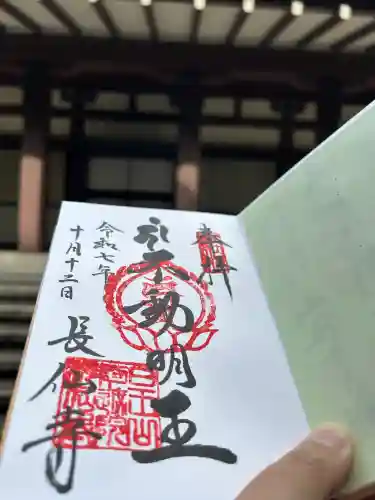 奉拝
不動明王
令和七年
十月十二日
長仙寺